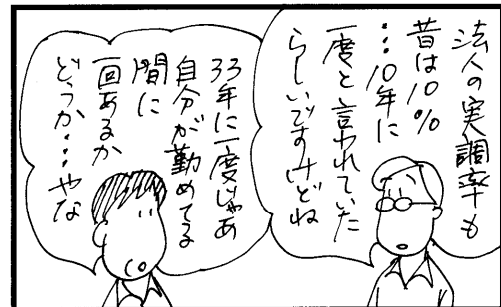 法人の実調率も
昔は10%
…10年に
一度と言われていた
らしいですけどね
33年に一度じゃあ
自分が勤めてる
間に
一回あるか
どうか…やな